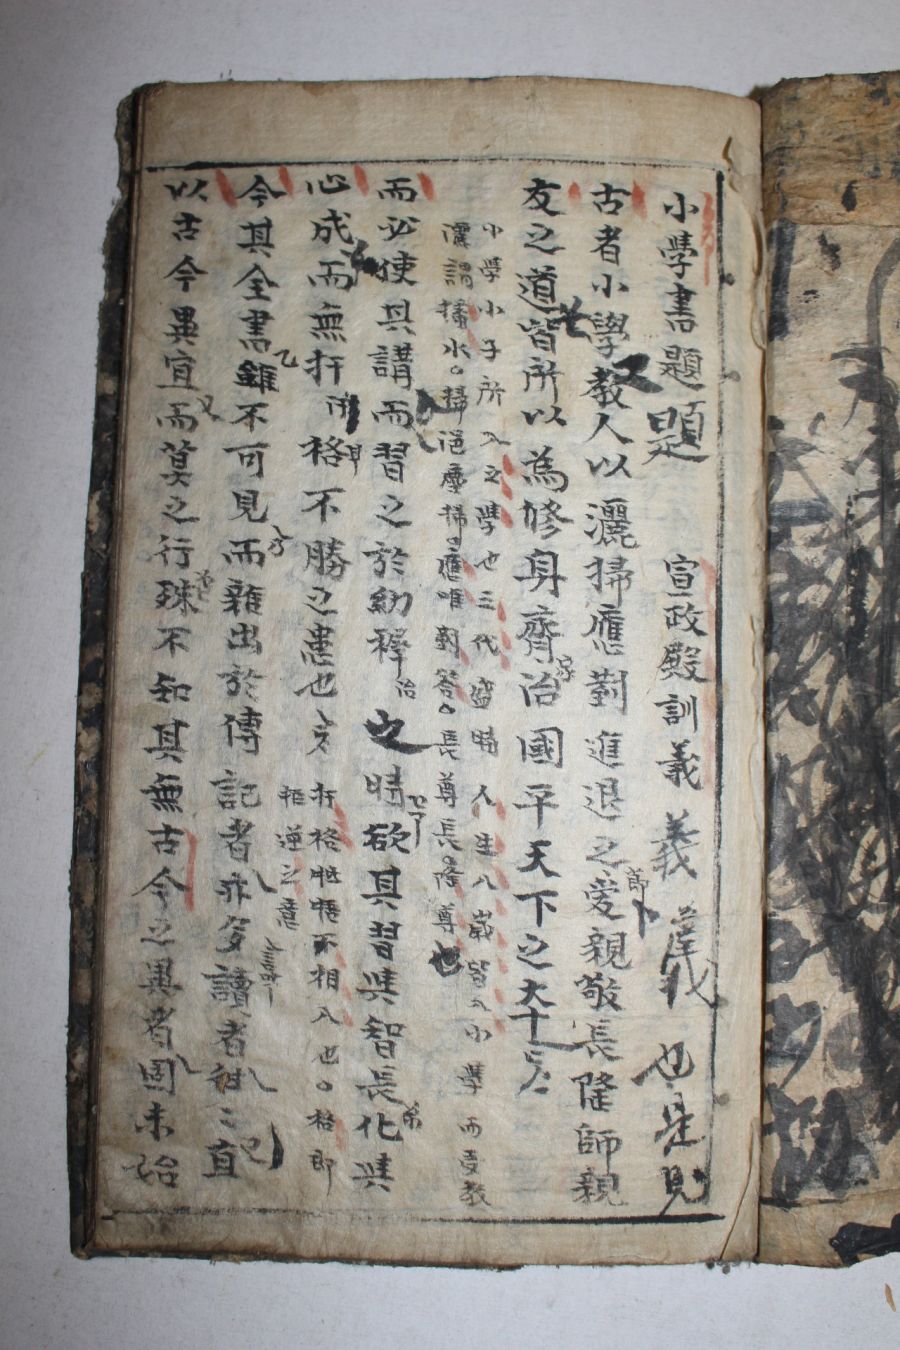 小學書題題 宣政殿訓義義義也是見
古者小學教人以灑掃應對進退之節愛親敬長隆師親
友之道皆所以為修身齊家治國平天下之本
小學小子所入之學也三代盛時人生八歲皆入小學而受教
灑謂播水掃謂浥塵掃應唯對答長尊長隆尊也
而必使其講而習之於幼穉之時欲其習與智長化與
心成而無扞格不勝之患也
扞格牴牾不相入也格即
拒逆之意
今其全書雖不可見而雜出於傳記者亦多讀者往〻直
以古今異宜而莫之行殊不知其無古今之異者固未始